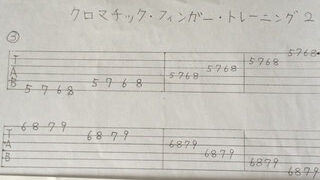 クロマチック・フィンガー・トレーニング2
③
TAB 5768 5768 5768 5768 5768 5768
TAB 6879 6879 6879 6879 6879 6879